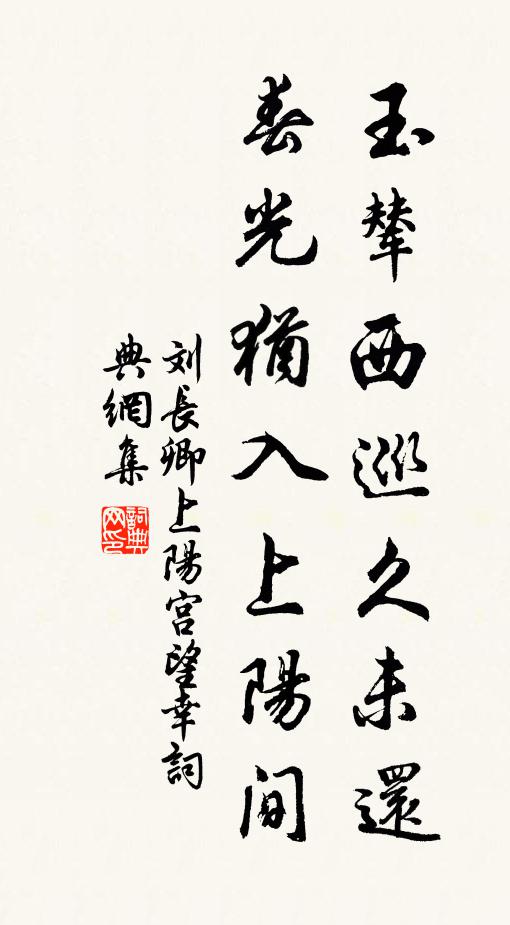 玉輦西巡久未還
春光猶入上陽間
刘長卿上陽宮望幸詞
典網集
詞典网印